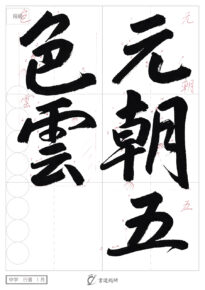 元朝五
色雲
元
朝
五
色
雲
中学 行書 1月
書道錦林